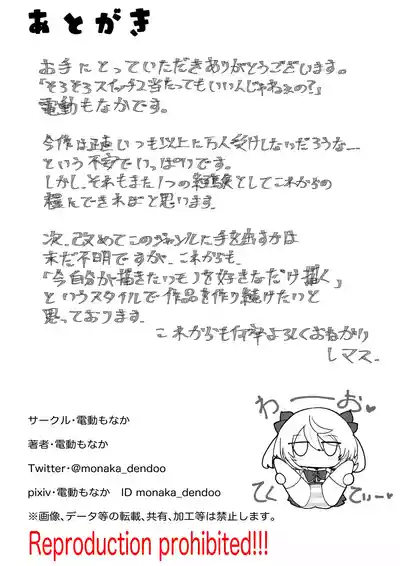 あとがき
お手にとっていただきありがとうございます。
『そろそろスイッチ2当たってもいいんじゃねぇの?』
電動もなかです。
今作は正直いつも以上に万人受けしないだろうな…
という不安でいっぱいです。
しかし、それもまた1つの経験としてこれからの
糧にできればと思います。
次、改めてこのジャンルに手を出すかは
未だ不明ですが、これからも
「今自分が描きたいものを好きなだけ描く」
というスタイルで作品を作り続けたいと
思っております。
これからも何卒よろしくおねがい
します。
わーお♥
てく
てぃー♥
サークル・電動もなか
著者・電動もなか
Twitter・@monaka_dendoo
pixiv・電動もなか ID monaka_dendoo
※画像、データ等の転載、共有、加工等は禁止します。
Reproduction prohibited!!!